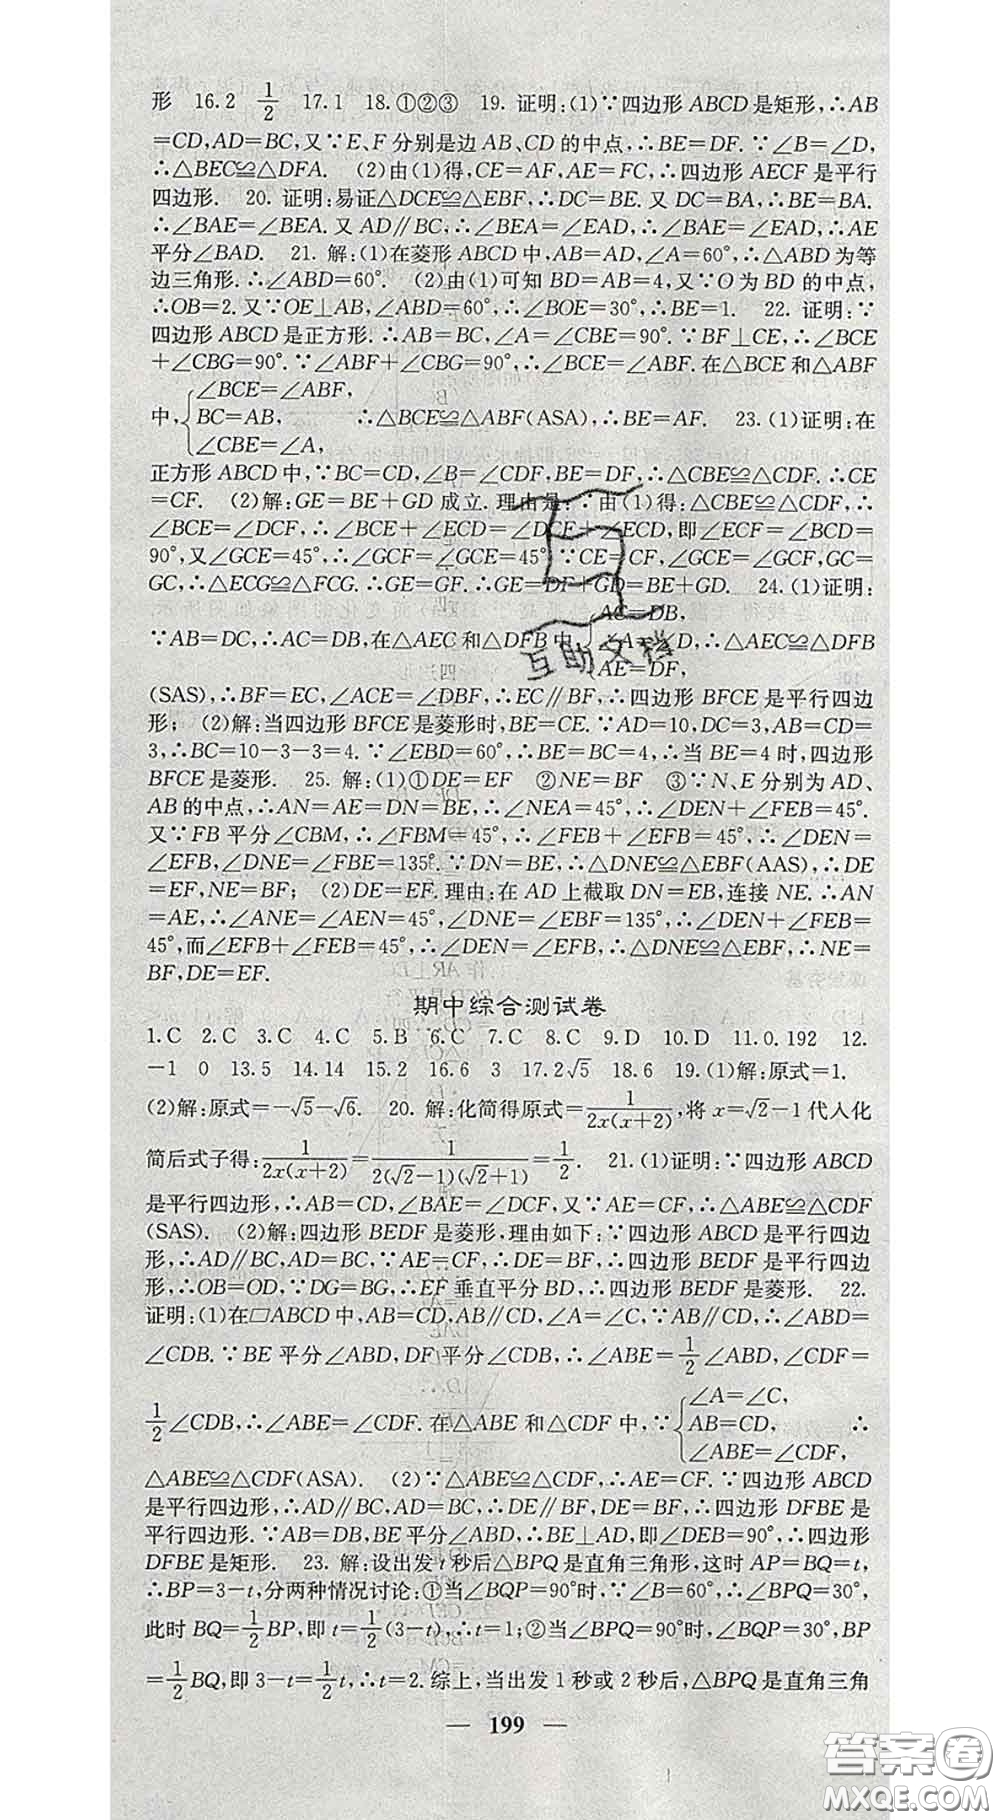 形 16.2 1/2 17.1 18.①②③ 19. 证明:(1)∵四边形 ABCD 是矩形,∴AB
=CD,AD=BC,又∵E、F 分别是边 AB、CD 的中点,∴BE=DF.∵∠B=∠D,
∴△BEC≌△DFA. (2)由(1)得,CE=AF,AE=FC,∴四边形 AECF 是平行
四边形. 20. 证明:易证△DCE≌△EBF,∴DC=BE.又 DC=BA,∴BE=BA.
∴∠BAE=∠BEA.又 AD∥BC,∴∠BEA=∠EAD,∴∠BAE=∠EAD,∴AE
平分∠BAD. 21. 解:(1)在菱形 ABCD 中,AB=AD,∠A=60°,∴△ABD 为等
边三角形.∴∠ABD=60°. (2)由(1)可知 BD=AB=4,又∵O 为 BD 的中点,
∴OB=2.又∵OE⊥AB,∠ABD=60°,∴∠BOE=30°,∴BE=1. 22. 证明:∵
四边形 ABCD 是正方形.∴AB=BC,∠A=∠CBE=90°.∵BF⊥CE,∴∠BCE
+∠CBG=90°.∵∠ABF+∠CBG=90°,∴∠BCE=∠ABF.在△BCE 和△ABF
∠BCE=∠ABF,
中,{BC=AB, ∴△BCE≌△ABF(ASA),∴BE=AF. 23.(1)证明:在
∠CBE=∠A,
正方形 ABCD 中,∵BC=CD,∠B=∠CDF,BE=DF,∴△CBE≌△CDF.∴CE
=CF. (2)解:GE=BE+GD 成立.理由是:∵由(1)得:△CBE≌△CDF,∴
∠BCE=∠DCF,∴∠BCE+∠ECD=∠DCE+∠ECD,即∠ECF=∠BCD=
90°,又∠GCE=45°,∴∠GCF=∠GCE=45°.∵CE=CF,∠GCE=∠GCF,GC=
GC,∴△ECG≌△FCG.∴GE=GF.∴GE=DF+GD=BE+GD. 24.(1)证明:
AC=DB,
∵AB=DC,∴AC=DB,在△AEC 和△DFB 中,{∠A=∠D,∴△AEC≌△DFB
AE=DF,
(SAS),∴BF=EC,∠ACE=∠DBF,∴EC∥BF,∴四边形 BFCE 是平行四边
形; (2)解:当四边形 BFCE 是菱形时,BE=CE.∵AD=10,DC=3,AB=CD=
3,∴BC=10-3-3=4.∵∠EBD=60°,∴BE=BC=4,∴当 BE=4 时,四边形
BFCE 是菱形. 25. 解:(1)①DE=EF ②NE=BF ③∵N、E 分别为 AD、
AB 的中点,∴AN=AE=DN=BE,∴∠NEA=45°,∴∠DEN+∠FEB=45°.
又∵FB 平分∠CBM,∴∠FBM=45°,∴∠FEB+∠EFB=45°,∴∠DEN=
∠EFB,∠DNE=∠FBE=135°.∵DN=BE,∴△DNE≌△EBF(AAS),∴DE
=EF,NE=BF; (2)DE=EF.理由:在 AD 上截取 DN=EB,连接 NE.∴AN
=AE,∴∠ANE=∠AEN=45°,∠DNE=∠EBF=135°,∴∠DEN+∠FEB=
45°,而∠EFB+∠FEB=45°,∴∠DEN=∠EFB,∴△DNE≌△EBF,∴NE=
BF,DE=EF.
期中综合测试卷
1.C 2.C 3.C 4.C 5.B 6.C 7.C 8.C 9.D 10.D 11.0.192 12.
-1 0 13.5 14.14 15.2 16.6 3 17.2√5 18.6 19.(1)解:原式=1.
(2)解:原式=-√5-√6. 20. 解:化简得原式=1/(2x(x+2)),将 x=√2-1 代入化
简后式子得:1/(2x(x+2))=1/(2(√2-1)(√2+1))=1/2. 21.(1)证明:∵四边形 ABCD
是平行四边形,∴AB=CD,∠BAE=∠DCF,又∵AE=CF,∴△ABE≌△CDF
(SAS). (2)解:四边形 BEDF 是菱形,理由如下:∵四边形 ABCD 是平行四边
形,∴AD∥BC,AD=BC,∵AE=CF,∴DE=BF,∴四边形 BEDF 是平行四边
形,∴OB=OD,∵DG=BG,∴EF 垂直平分 BD,∴四边形 BEDF 是菱形. 22.
证明:(1)在□ABCD 中,AB=CD,AB∥CD,∠A=∠C,∵AB∥CD,∴∠ABD=
∠CDB.∵BE 平分∠ABD,DF 平分∠CDB,∴∠ABE=1/2∠ABD,∠CDF=
1/2∠CDB,∴∠ABE=∠CDF.在△ABE 和△CDF 中,∵{∠A=∠C,
AB=CD, ∴
∠ABE=∠CDF,
△ABE≌△CDF(ASA). (2)∵△ABE≌△CDF,∴AE=CF.∵四边形 ABCD
是平行四边形,∴AD∥BC,AD=BC,∴DE∥BF,DE=BF,∴四边形 DFBE 是
平行四边形.∵AB=DB,BE 平分∠ABD,∴BE⊥AD,即∠DEB=90°,∴四边形
DFBE 是矩形. 23. 解:设出发 t 秒后△BPQ 是直角三角形,这时 AP=BQ=t,
∴BP=3-t,分两种情况讨论:①当∠BQP=90°时,∵∠B=60°,∴∠BPQ=30°,
此时 BQ=1/2BP,即 t=1/2(3-t),∴t=1;②当∠BPQ=90°时,∠BQP=30°,BP
=1/2BQ,即 3-t=1/2t,∴t=2.综上,当出发 1 秒或 2 秒后,△BPQ 是直角三角
— 199 —
互助文档
答案圈
MXQE.COM